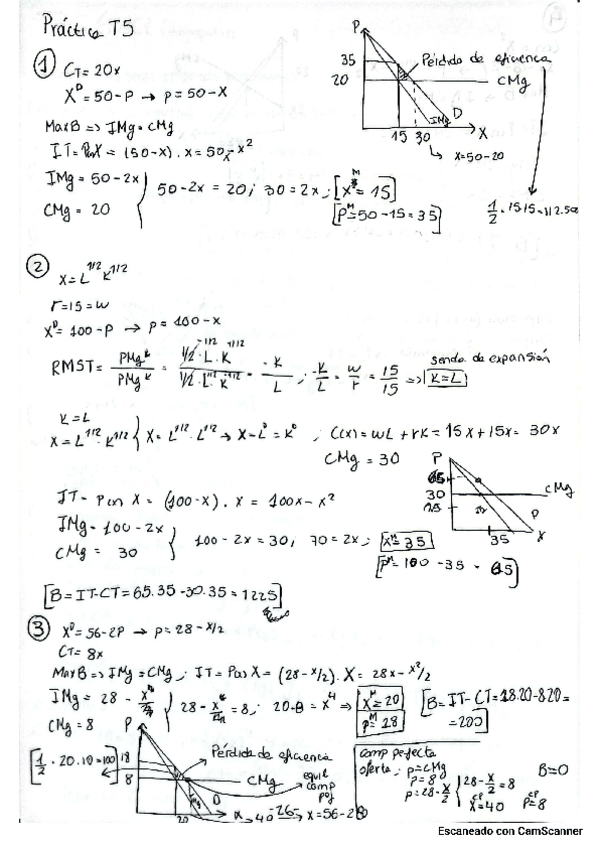 Práctica T5
① CT = 20x
X^D = 50 - P → p = 50 - X
MaxB => IMg = CMg
IT = P·X = (50-x) . x = 50x - x²
IMg = 50 - 2x
CMg = 20
50 - 2x = 20 ; 30 = 2x ; [X^M = 15]
[P^M = 50 - 15 = 35]
P
35
20
Pérdida de eficiencia
CMg
IMg
D
X
15 30
↳ X = 50 - 20
1/2 · 15·15 = 112.50
② X = L^1/2 K^1/2
r = 15 = w
X^D = 100 - P → p = 100 - x
RMST =
K/L = w/r = 15/15 => [K = L]
senda de expansión
K = L
X = L^1/2 · K^1/2
X = L^1/2 · L^1/2 → X = L = K ; C(x) = wL + rK = 15x + 15x = 30x
CMg = 30
P
65
30
CMg
35
X
IT = P·X = (100-x) . x = 100x - x²
IMg = 100 - 2x
CMg = 30
100 - 2x = 30 ; 70 = 2x ; [X^M = 35]
[P^M = 100 - 35 = 65]
[B = IT - CT = 65.35 - 30.35 = 1225]
③ X^D = 56 - 2P → p = 28 - x/2
CT = 8x
MaxB => IMg = CMg ; IT = P·X = (28 - x/2) . X = 28x - x²/2
IMg = 28 - x
CMg = 8
28 - x = 8 ; 20·8 = x^M => [X^M = 20]
[P^M = 18]
[B = IT - CT = 18.20 - 8.20 = = 200]
[1/2 · 20.10 = 100]
P
18
8
Pérdida de eficiencia
CMg
equil comp
D
20
x = 40
x = 56 - 2·8
comp perfecta
oferta ; p = CMg
P = 8
P = 28 - x/2
28 - x/2 = 8
X^CP = 40 P^CP = 8
B = 0
Escaneado con CamScanner